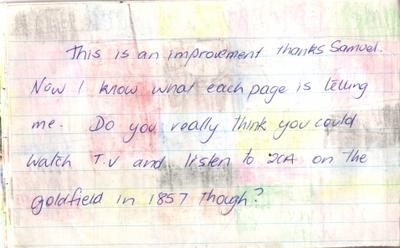 This is an improvement thanks Samuel.
Now I know what each page is telling
me. Do you really think you could
watch T.V and listen to 2CA on the
goldfield in 1857 though?